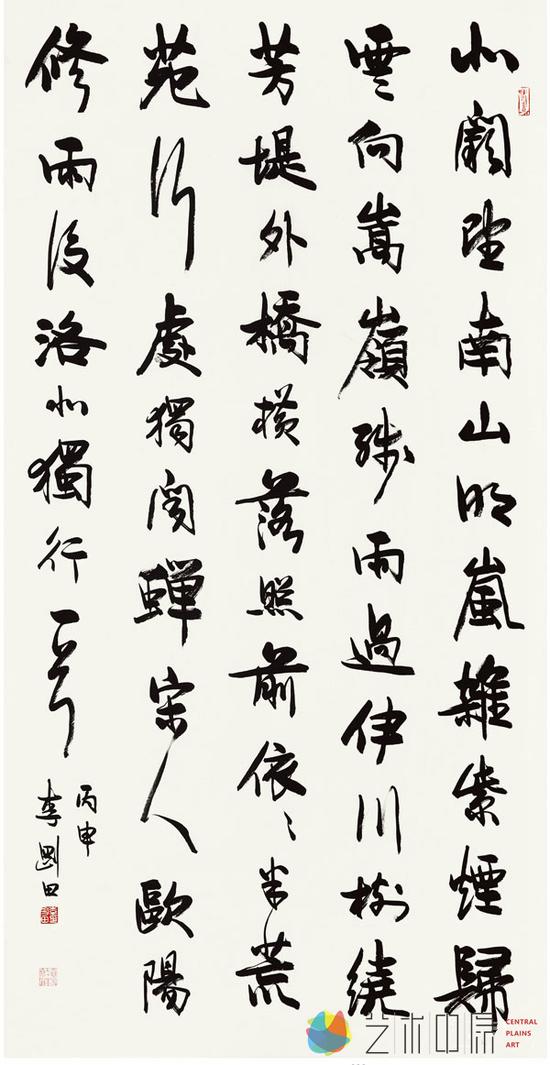 北闕望南山明嵐雜紫煙歸
雲向嵩嶺殘雨過伊川樹繞
芳堤外橋橫落照前依〻半荒
苑行處獨聞蟬宋人歐陽
修雨後洛北獨行一首
丙申
李剛田
艺术中原
CENTRAL
PLAINS
ART